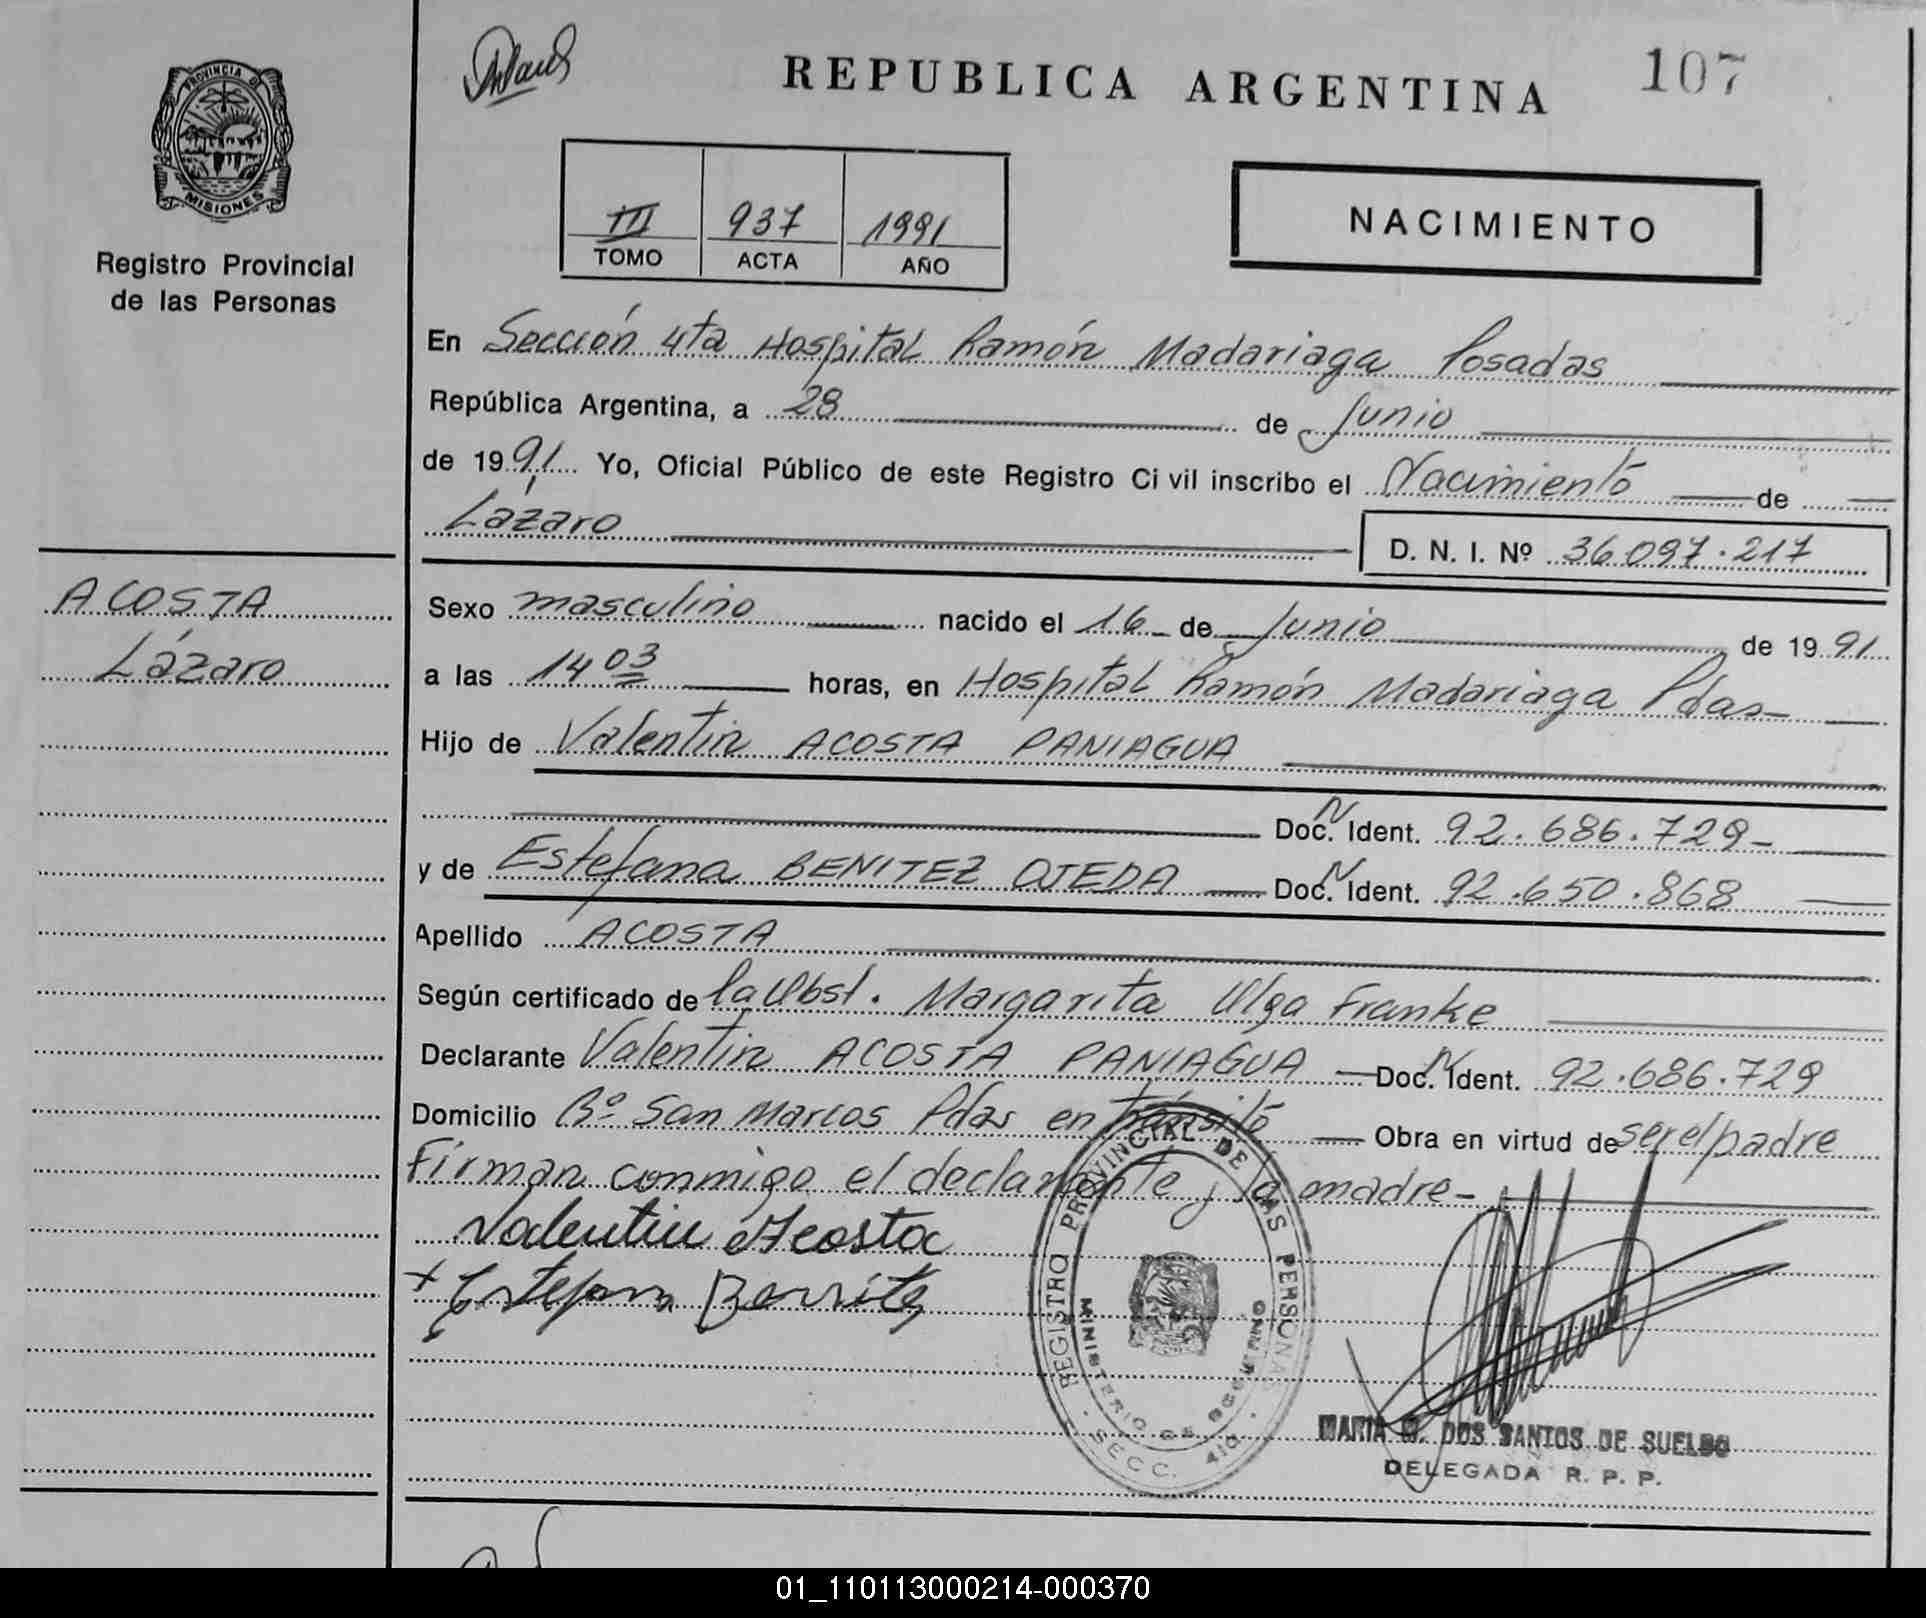 REPUBLICA ARGENTINA
107
PROVINCIA DE
MISIONES
Registro Provincial
de las Personas
III 937 1991
TOMO ACTA AÑO
NACIMIENTO
En Sección 4ta Hospital Ramón Madariaga Posadas
República Argentina, a 28 de Junio
de 1991 Yo, Oficial Público de este Registro Ci vil inscribo el Nacimiento de
Lázaro
D. N. I. Nº 36.097.217
ACOSTA
Lázaro
Sexo masculino nacido el 16 de Junio de 1991
a las 14 03 horas, en Hospital Ramón Madariaga Pdas
Hijo de Valentin ACOSTA PANIAGUA
Doc. N Ident. 92.686.729
y de Estefana BENITEZ OJEDA Doc. N Ident. 92.650.868
Apellido ACOSTA
Según certificado de la Obst. Margarita Olga Franke
Declarante Valentin ACOSTA PANIAGUA Doc. N Ident. 92.686.729
Domicilio Bº San Marcos Pdas en tránsito Obra en virtud de ser el padre
Firman conmigo el declarante y la madre
Valentin Acosta
+ Estefana Benitez
REGISTRO PROVINCIAL DE LAS PERSONAS
MINISTERIO DE GOBIERNO
SECC. 4ta
MARIA DOS SANTOS DE SUELDO
DELEGADA R. P. P.
01_110113000214-000370